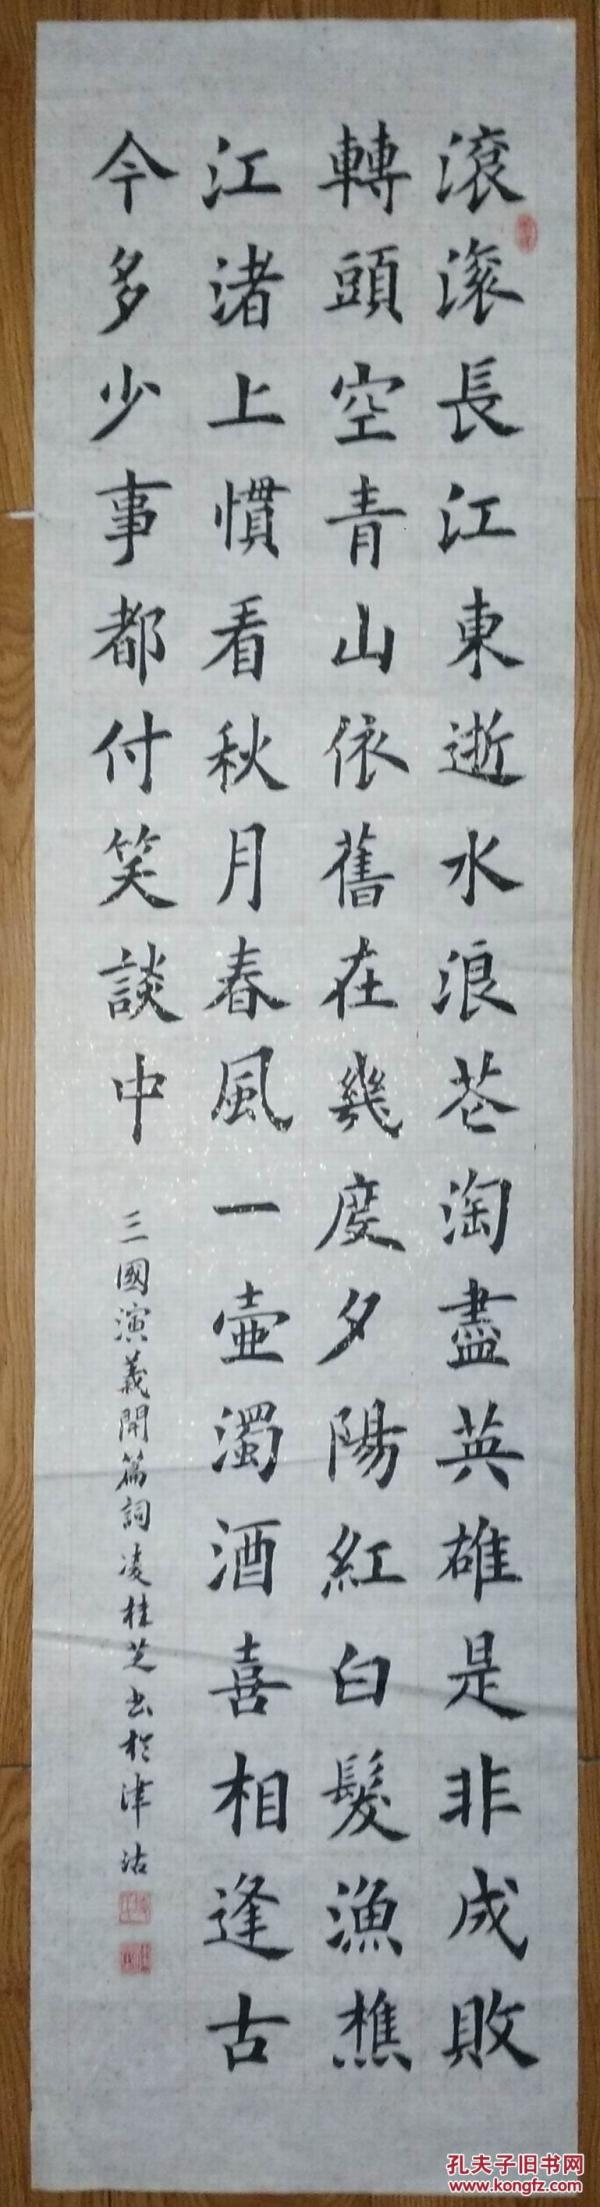 滾滚長江東逝水浪花淘盡英雄是非成敗
轉頭空青山依舊在幾度夕陽紅白髮漁樵
江渚上慣看秋月春風一壺濁酒喜相逢古
今多少事都付笑談中
三國演義開篇詞凌桂芝书於津沽
孔夫子旧书网
www.kongfz.com